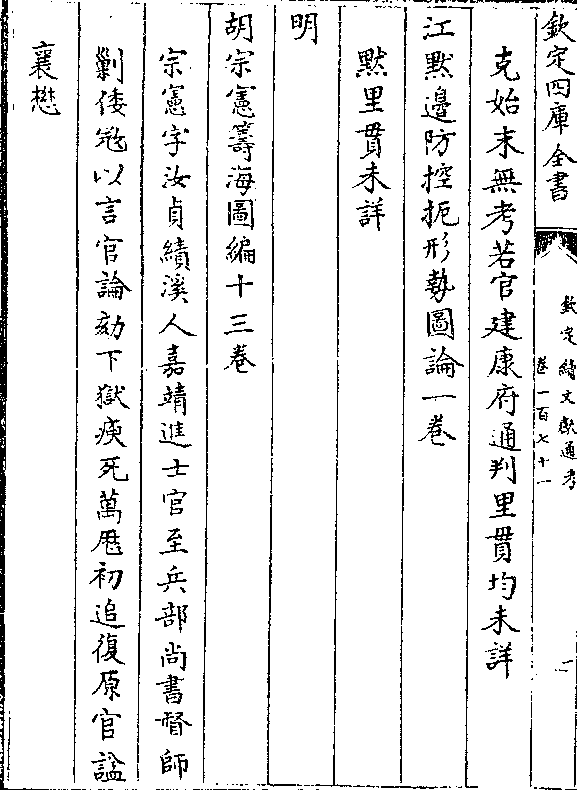 欽定四庫全書
欽定續文獻通考
卷一百七十一
二
克始末無考若官建康府通判里貫均未詳
江默邊防控扼形勢圖論一卷
默里貫未詳
明
胡宗憲籌海圖編十三卷
宗憲字汝貞績溪人嘉靖進士官至兵部尚書督師
剿倭冦以言官論劾下獄瘐死萬厯初追復原官諡
襄懋